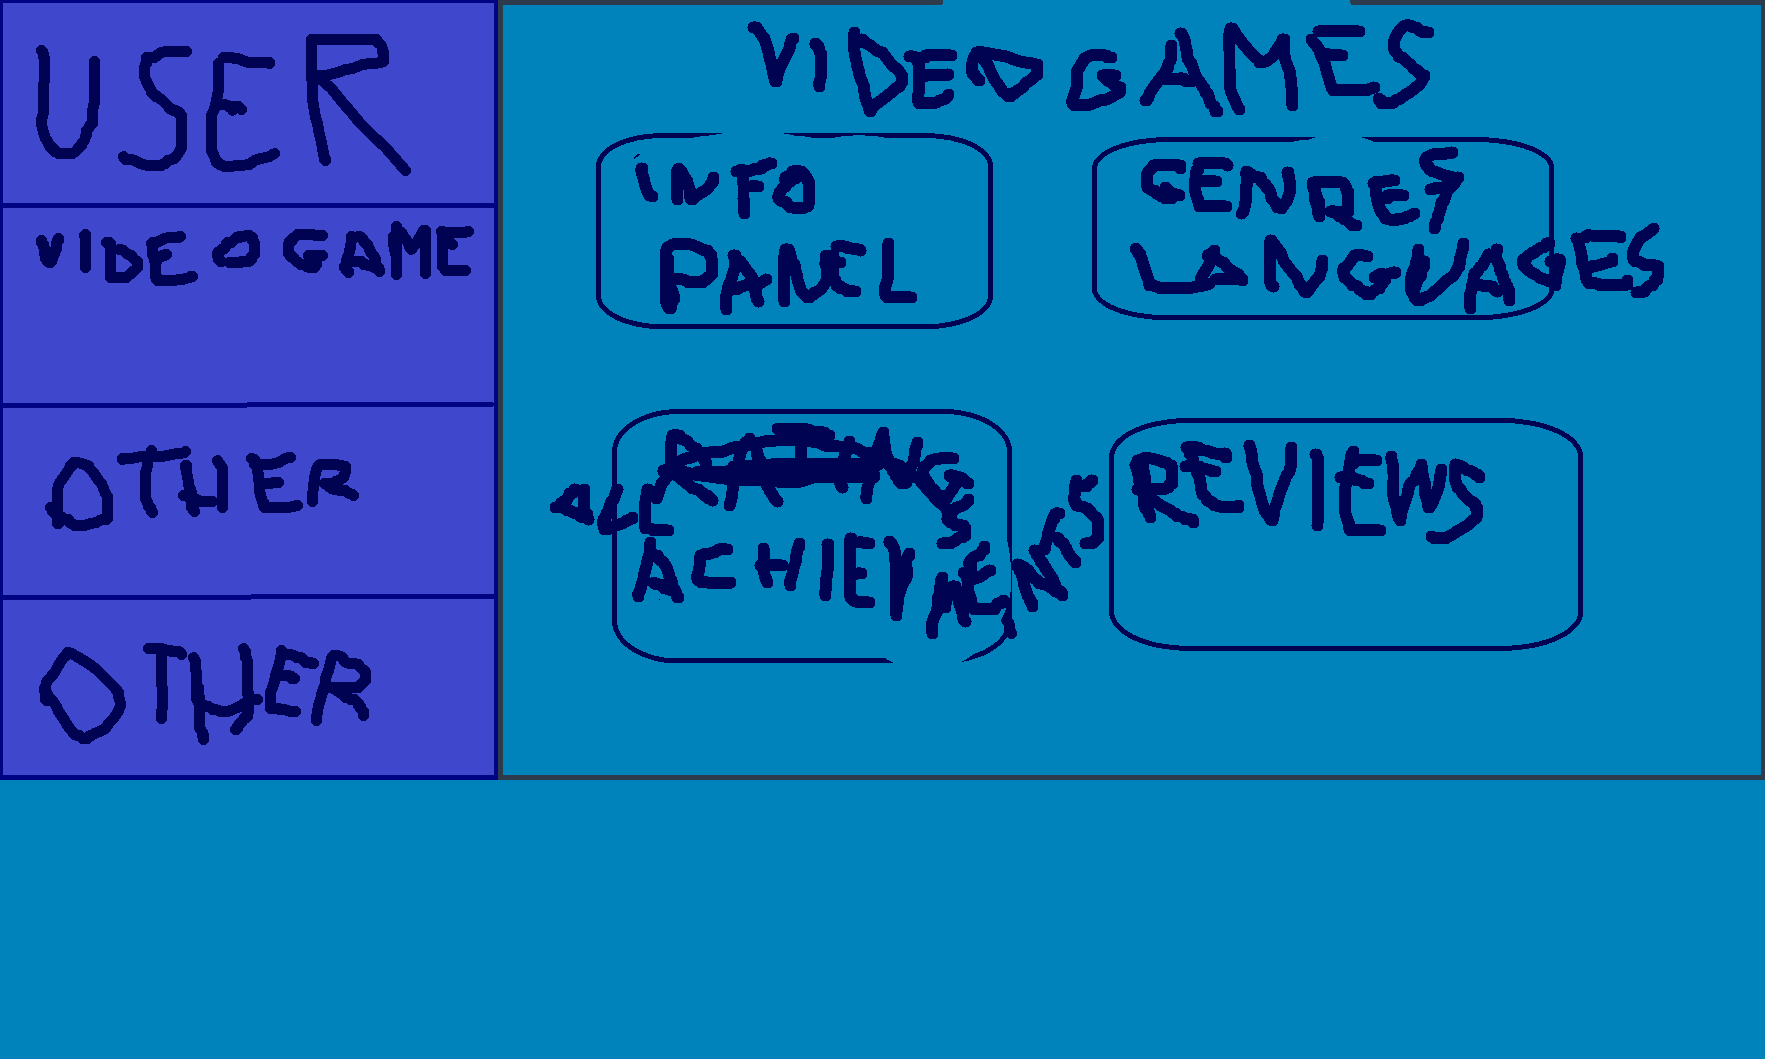 USER
VIDEOGAME
OTHER
OTHER
VIDEOGAMES
INFO
PANEL
GENRES
LANGUAGES
RATINGS
ALL
ACHIEVMENTS
REVIEWS